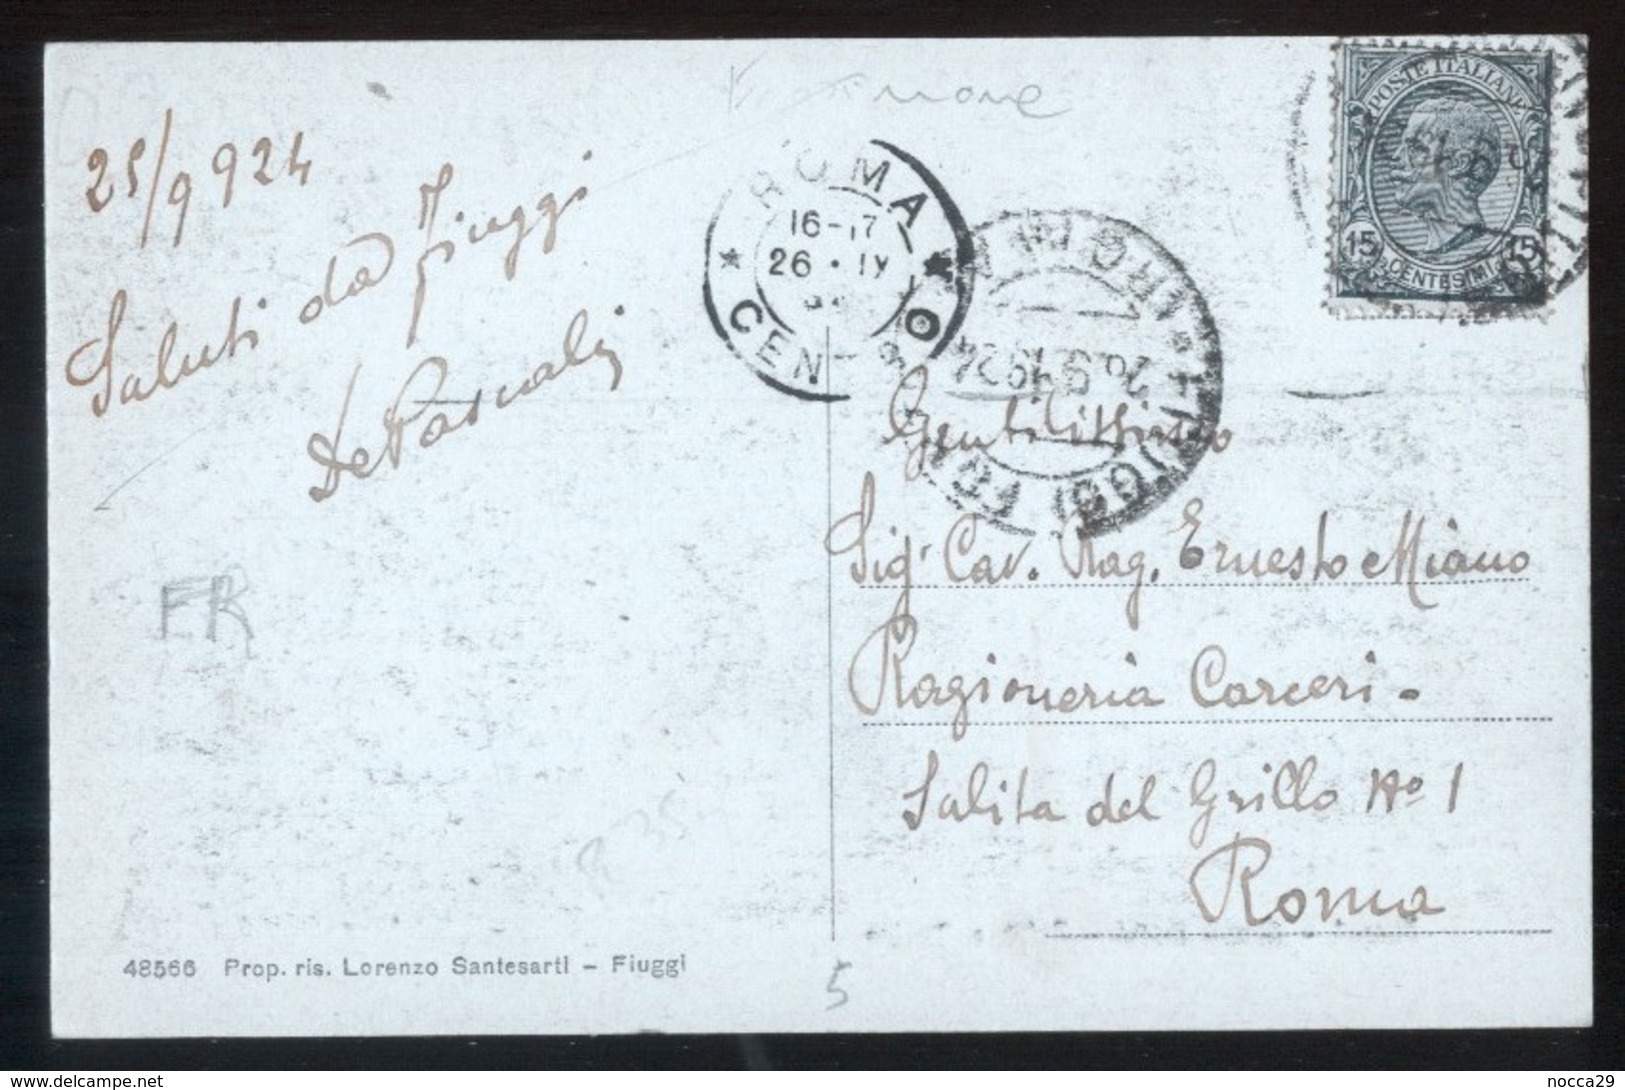 25/9 924
Saluti da Fiuggi
De Pascalis
ROMA
16-17
26 · IX
CENTRO
FIUGGI
POSTE ITALIANE
15 15
CENTESIMI
Gentilissimo
Sigr Cav. Rag. Ernesto Miano
Ragioneria Carceri -
Salita del Grillo No 1
Roma
FR
5
48566 Prop. ris. Lorenzo Santesarti - Fiuggi
delcampe.net
nocca29